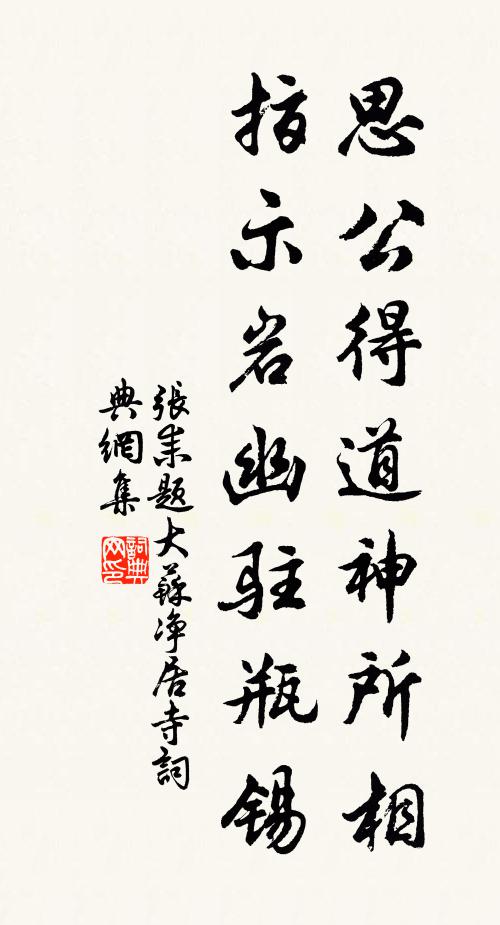 思公得道神所相
指示岩幽駐瓶錫
張耒題大蘇净居寺詞
典網集
詞典網印